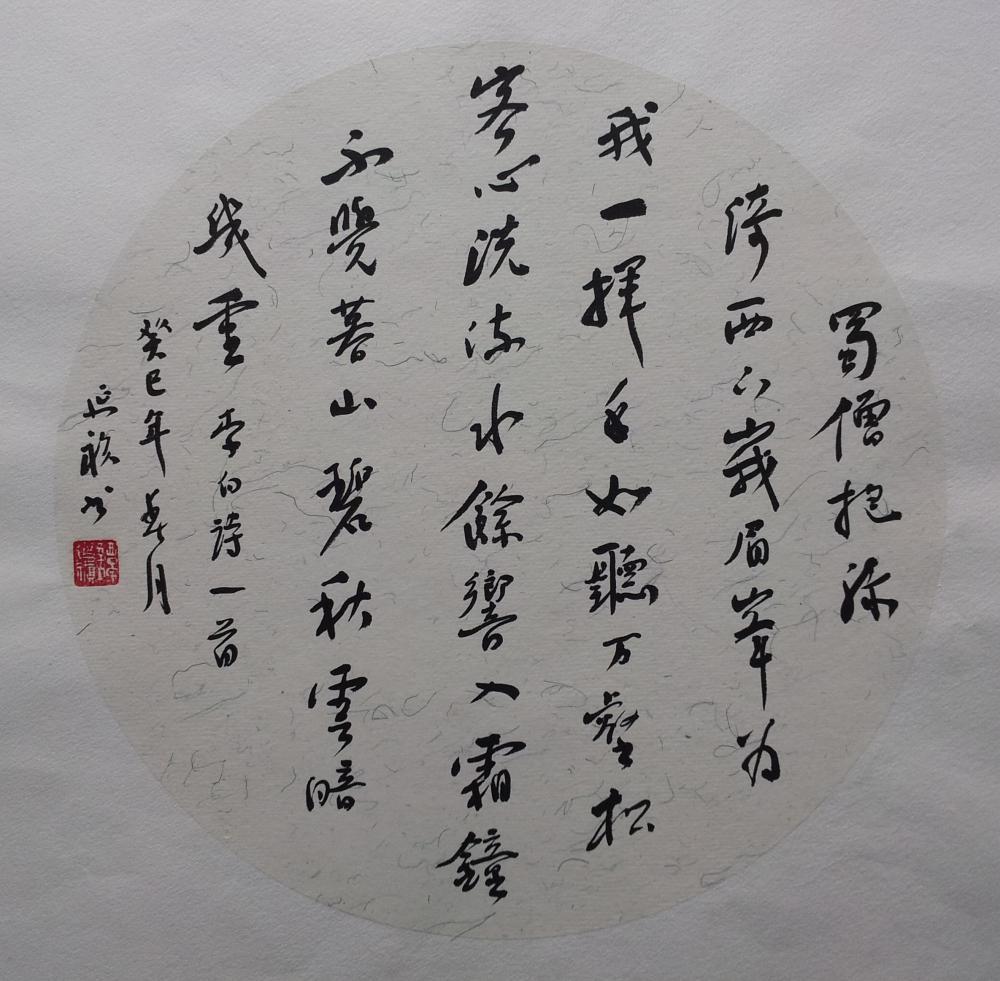 蜀僧抱綠
綺西下峩眉峯为
我一揮手如聽万壑松
客心洗流水餘響入霜鐘
不覺暮山碧秋雲暗
幾重 李白詩一首
癸巳年春月
延书